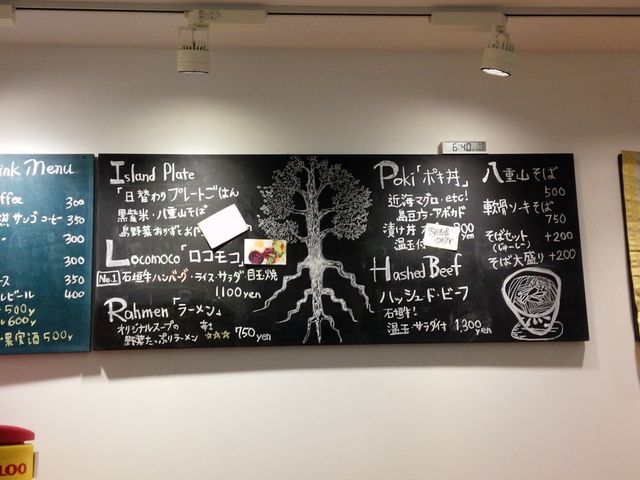 ink Menu
ffee 300
コーヒー 350
300
300
ース 350
ルビール 400
500y
600y
果実酒 500y
Island Plate
「日替わりプレートごはん
黒紫米・八重山そば
島野菜おかずとお
Locomoco「ロコモコ」
No.1 石垣牛ハンバーグ・ライス・サラダ 目玉焼
1,100yen
Rahmen「ラーメン」
オリジナルスープの 辛さ
野菜たっぷりラーメン ☆☆☆ 750yen
6:40
Poki「ポキ丼」
近海マグロ・etc!
島豆方・アボカド
漬け丼
温玉付
00yen
Hashed Beef
ハッシュド・ビーフ
石垣牛!
温玉 サラダ付 1300yen
八重山そば
500
軟骨ソーキそば
750
そばセット +200
(じゅーしー)
そば大盛り +200
LOO